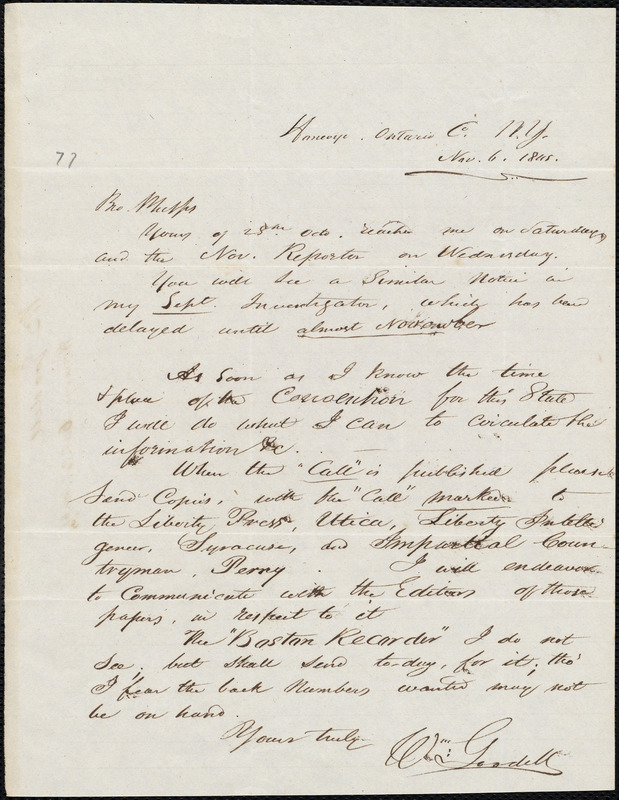 Honeoye. Ontario Co. N.Y.
Nov. 6. 1845.
77
Bro. Phelps
Yours of 25th Oct. reaches me on Saturday
and the Nov. Reporter on Wednesday.
You will see a Similar Notice in
my Sept. Investigator, which has been
delayed until almost November
As soon as I know the time
& place of the Convention for this State
I will do what I can to circulate the
information &c.
When the "Call" is published please
Send Copies, with the "Call" marked to
the Liberty Press, Utica, Liberty Intelli
gencer, Syracuse, and Impartial Coun-
tryman, Perry. I will endeavor
to Communicate with the Editors of those
papers, in respect to it
The "Boston Recorder" I do not
See, but shall send to-day, for it; tho'
I fear the back Numbers wanted may not
be on hand.
Yours truly
Wm. Goodell